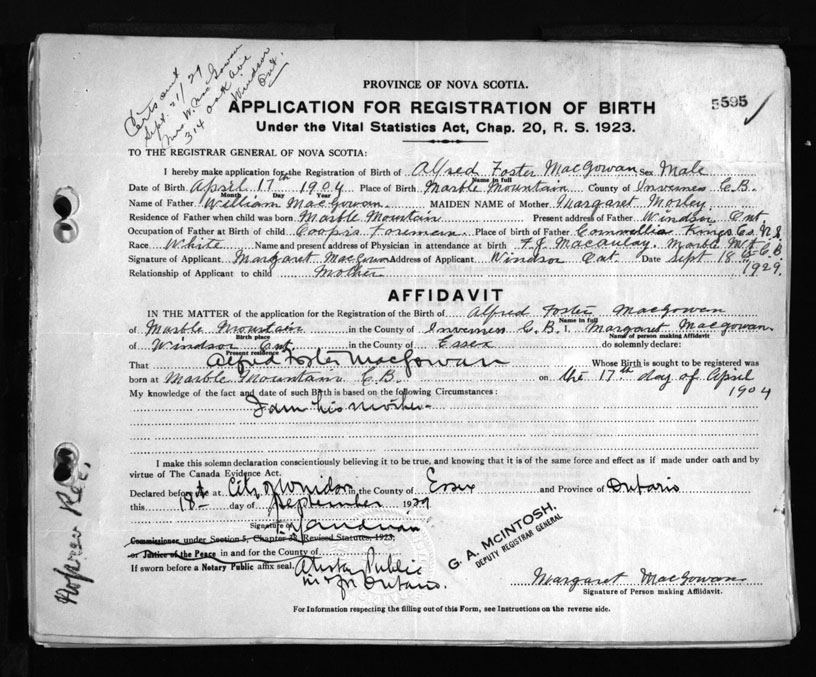 Certs out
Sept. 21/29
Mrs W. MacGowan
314 Oak Ave
Windsor
Ont.
5595
PROVINCE OF NOVA SCOTIA.
APPLICATION FOR REGISTRATION OF BIRTH
Under the Vital Statistics Act, Chap. 20, R. S. 1923.
TO THE REGISTRAR GENERAL OF NOVA SCOTIA:
I hereby make application for the Registration of Birth of Alfred Foster MacGowan Sex Male
Name in full
Date of Birth April 17th 1904 Place of Birth Marble Mountain County of Inverness C.B.
Month Day Year
Name of Father William MacGowan. MAIDEN NAME of Mother Margaret Morley
Residence of Father when child was born Marble Mountain Present address of Father Windsor Ont
Occupation of Father at Birth of child Foreman. Place of birth of Father Kings Co. N S
Race White Name and present address of Physician in attendance at birth Macaulay. Marble Mt C B
Signature of Applicant Margaret MacGowan Address of Applicant Windsor Ont. Date Sept 18
1929.
Relationship of Applicant to child Mother
AFFIDAVIT
IN THE MATTER of the application for the Registration of the Birth of Alfred Foster MacGowen
Name in full
of Marble Mountain in the County of Inverness C.B. I, Margaret Macgowan
Birth place Name of person making Affidavit
of Windsor Ont. in the County of Essex do solemnly declare:
Present residence
That Alfred Foster MacGowan Whose Birth is sought to be registered was
born at Marble Mountain C.B. on the 17th day of April
1904
My knowledge of the fact and date of such Birth is based on the following Circumstances:
I am his mother
I make this solemn declaration conscientiously believing it to be true, and knowing that it is of the same force and effect as if made under oath and by
virtue of The Canada Evidence Act.
Declared before me at City of Windsor in the County of Essex and Province of Ontario
this 18th day of September 1929
Signature of
Commissioner under Section 5, Chapter 38, Revised Statutes, 1923,
or Justice of the Peace in and for the County of
If sworn before a Notary Public affix seal. A Notary Public
in & for Ontario.
G. A. MCINTOSH,
DEPUTY REGISTRAR GENERAL
Margaret MacGowan
Signature of Person making Affidavit.
For Information respecting the filling out of this Form, see Instructions on the reverse side.